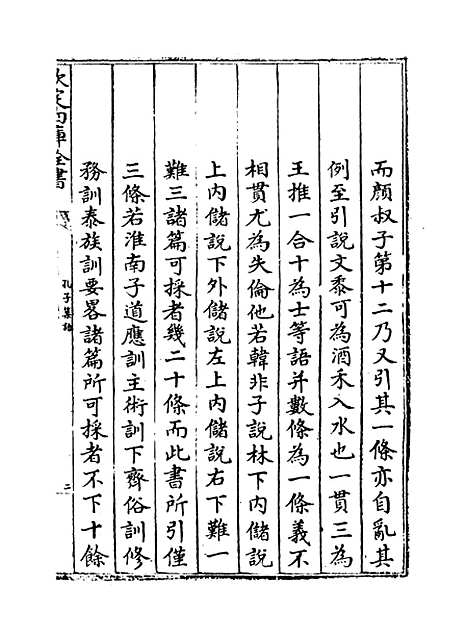 而顔叔子第十二乃又引其一條亦自亂其
例至引說文黍可為酒禾入水也一貫三為
王推一合十為士等語并數條為一條義不
相貫尤為失倫他若韓非子說林下内儲說
上内儲說下外儲說左上内儲說右下難一
難三諸篇可採者幾二十條而此書所引僅
三條若淮南子道應訓主術訓下齊俗訓修
務訓泰族訓要畧諸篇所可採者不下十餘
欽定四庫全書
孔子集語
二